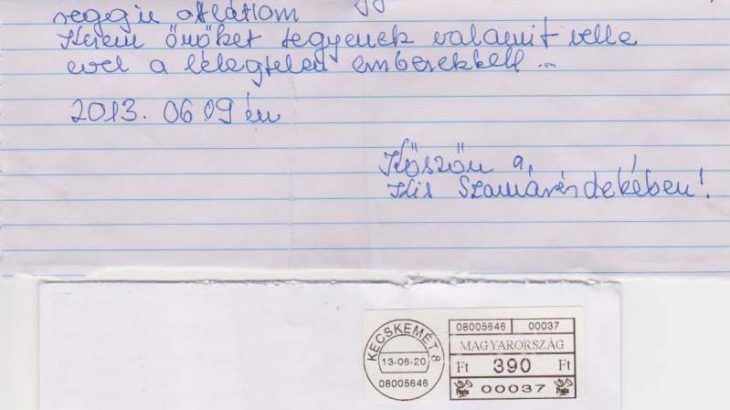 reggie átlátom
Kérem önöket tegyenek valamit velle
evel a lélegtelen emberekkell...
2013. 06 09 én
Köszön a,
Kis Szamár érdekében!
KECSKEMÉT 8
13-06-20
08005646
08005646 00037
MAGYARORSZÁG
Ft 390 Ft
00037